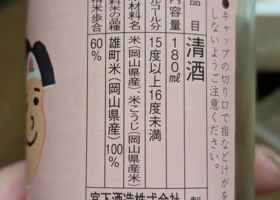 ●キャップの切り口で指などけがを
しないようご注意ください。
品目 清酒
内容量 180ml
アルコール分 15度以上16度未満
原材料名 米(岡山県産)、米こうじ(岡山県産米)
原料米の品種 雄町米(岡山県産)100%
精米歩合 60%
宮下酒造株式会社
製